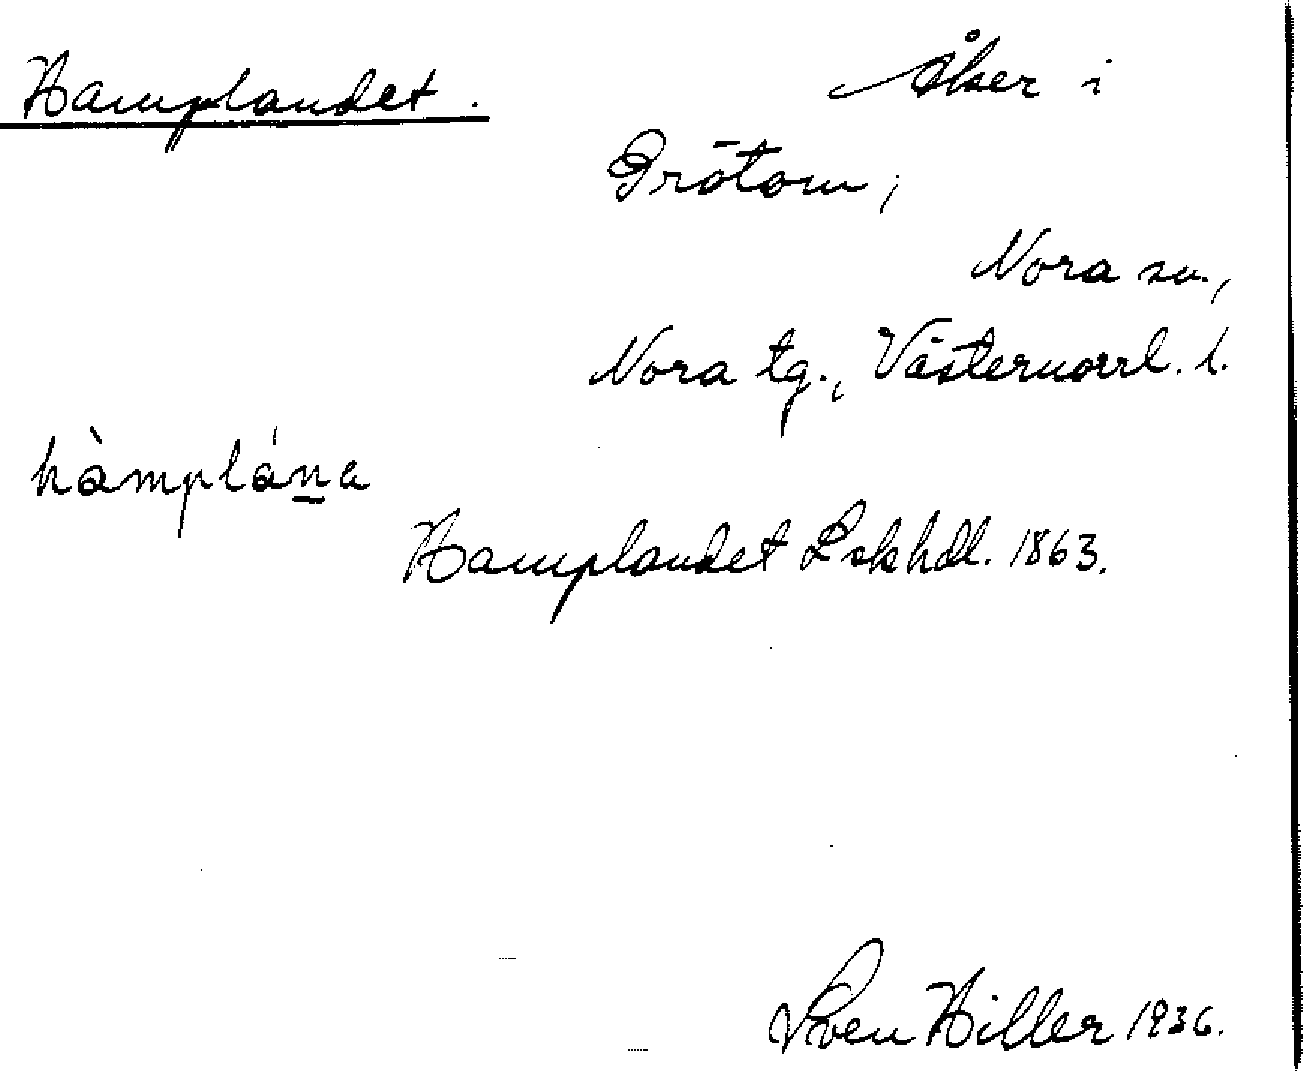 Hamplandet.
Åker i
Prötom,
Nora sn.,
Nora tg., Västernorrl. l.
hàmplána
Hamplandet Lskhdl. 1863.
Sven Hiller 1936.